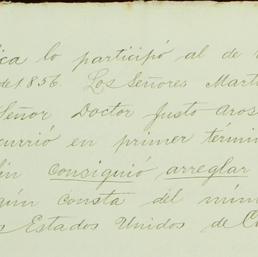 ica lo participó al de
de 1856. Los Señores Mart
Señor Doctor Justo Aros
currió en primer termin
consiguió arreglar
gún consta del mún
s Estados Unidos de C